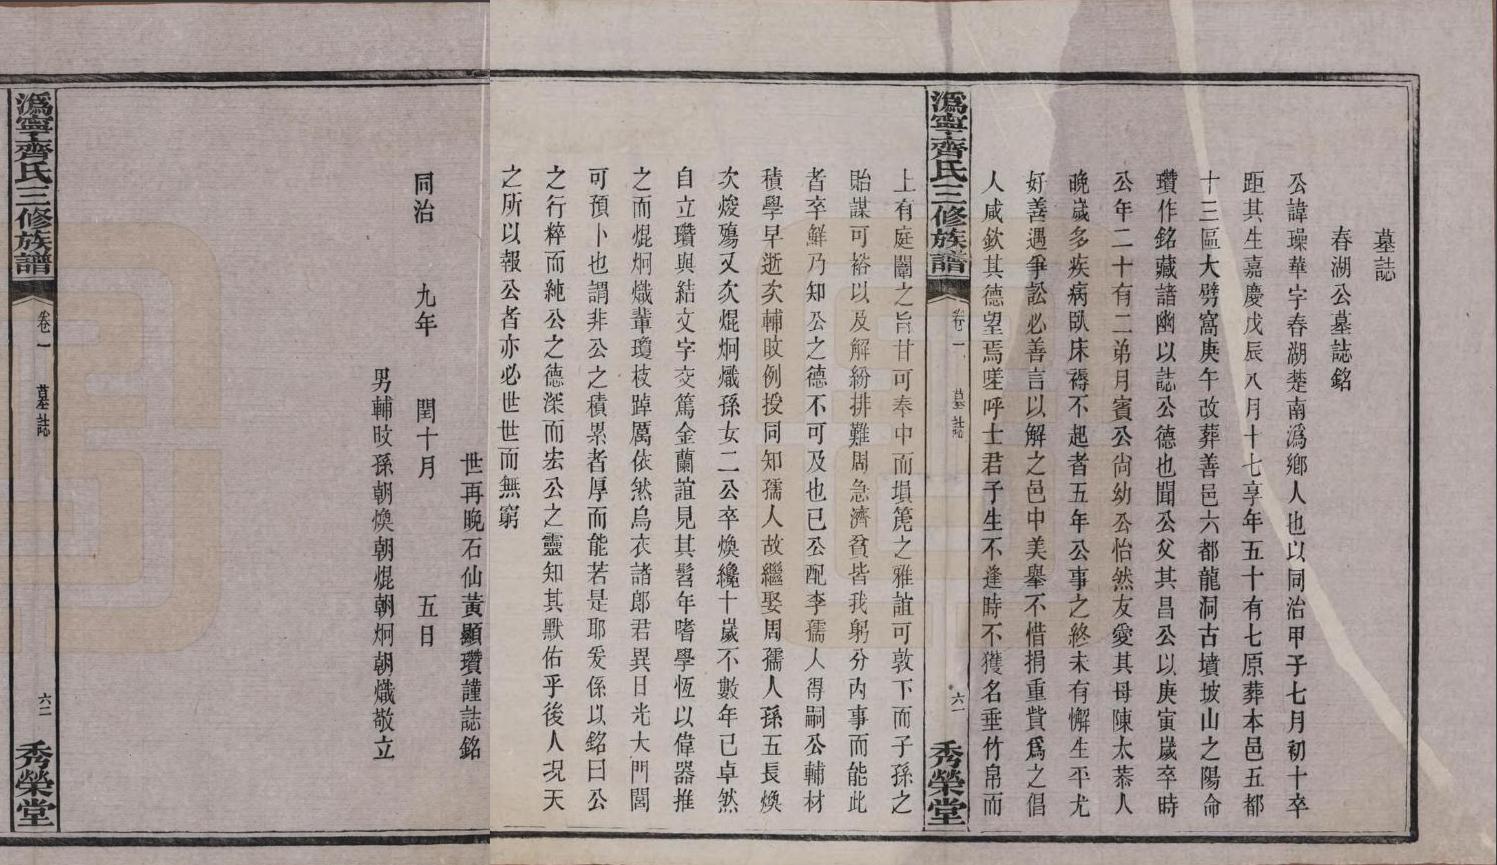 墓誌
春湖公墓誌銘
公諱璪華字春湖楚南溈鄉人也以同治甲子七月初十卒
距其生嘉慶戊辰八月十七享年五十有七原葬本邑五都
十三區大劈窩庚午改葬善邑六都龍洞古墳坡山之陽命
瓚作銘藏諸幽以誌公德也聞公父其昌公以庚寅歲卒時
公年二十有二弟月賓公尙幼公怡然友愛其母陳太恭人
晚歲多疾病臥床褥不起者五年公事之終未有懈生平尤
好善遇爭訟必善言以解之邑中美舉不惜捐重貲爲之倡
人咸欽其德望焉嗟呼士君子生不逢時不獲名垂竹帛而
溈寧齊氏三修族譜
卷一
墓誌
六一
秀榮堂
上有庭闈之旨甘可奉中而塤篪之雅誼可敦下而子孫之
貽謀可裕以及解紛排難周急濟貧皆我躬分內事而能此
者卒鮮乃知公之德不可及也已公配李孺人得嗣公輔材
積學早逝次輔旼例授同知孺人故繼娶周孺人孫五長煥
次焌殤又次焜炯熾孫女二公卒煥纔十歲不數年已卓然
自立瓚與結文字交篤金蘭誼見其髫年嗜學恆以偉器推
之而焜炯熾輩瓊枝踔厲依然烏衣諸郎君異日光大門閭
可預卜也謂非公之積累者厚而能若是耶爰係以銘曰公
之行粹而純公之德深而宏公之靈知其默佑乎後人况天
之所以報公者亦必世世而無窮
世再晚石仙黃顯瓚謹誌銘
同治 九年 閏十月 五日
男輔旼孫朝煥朝焜朝炯朝熾敬立
溈寧齊氏三修族譜
卷一
墓誌
六二
秀榮堂